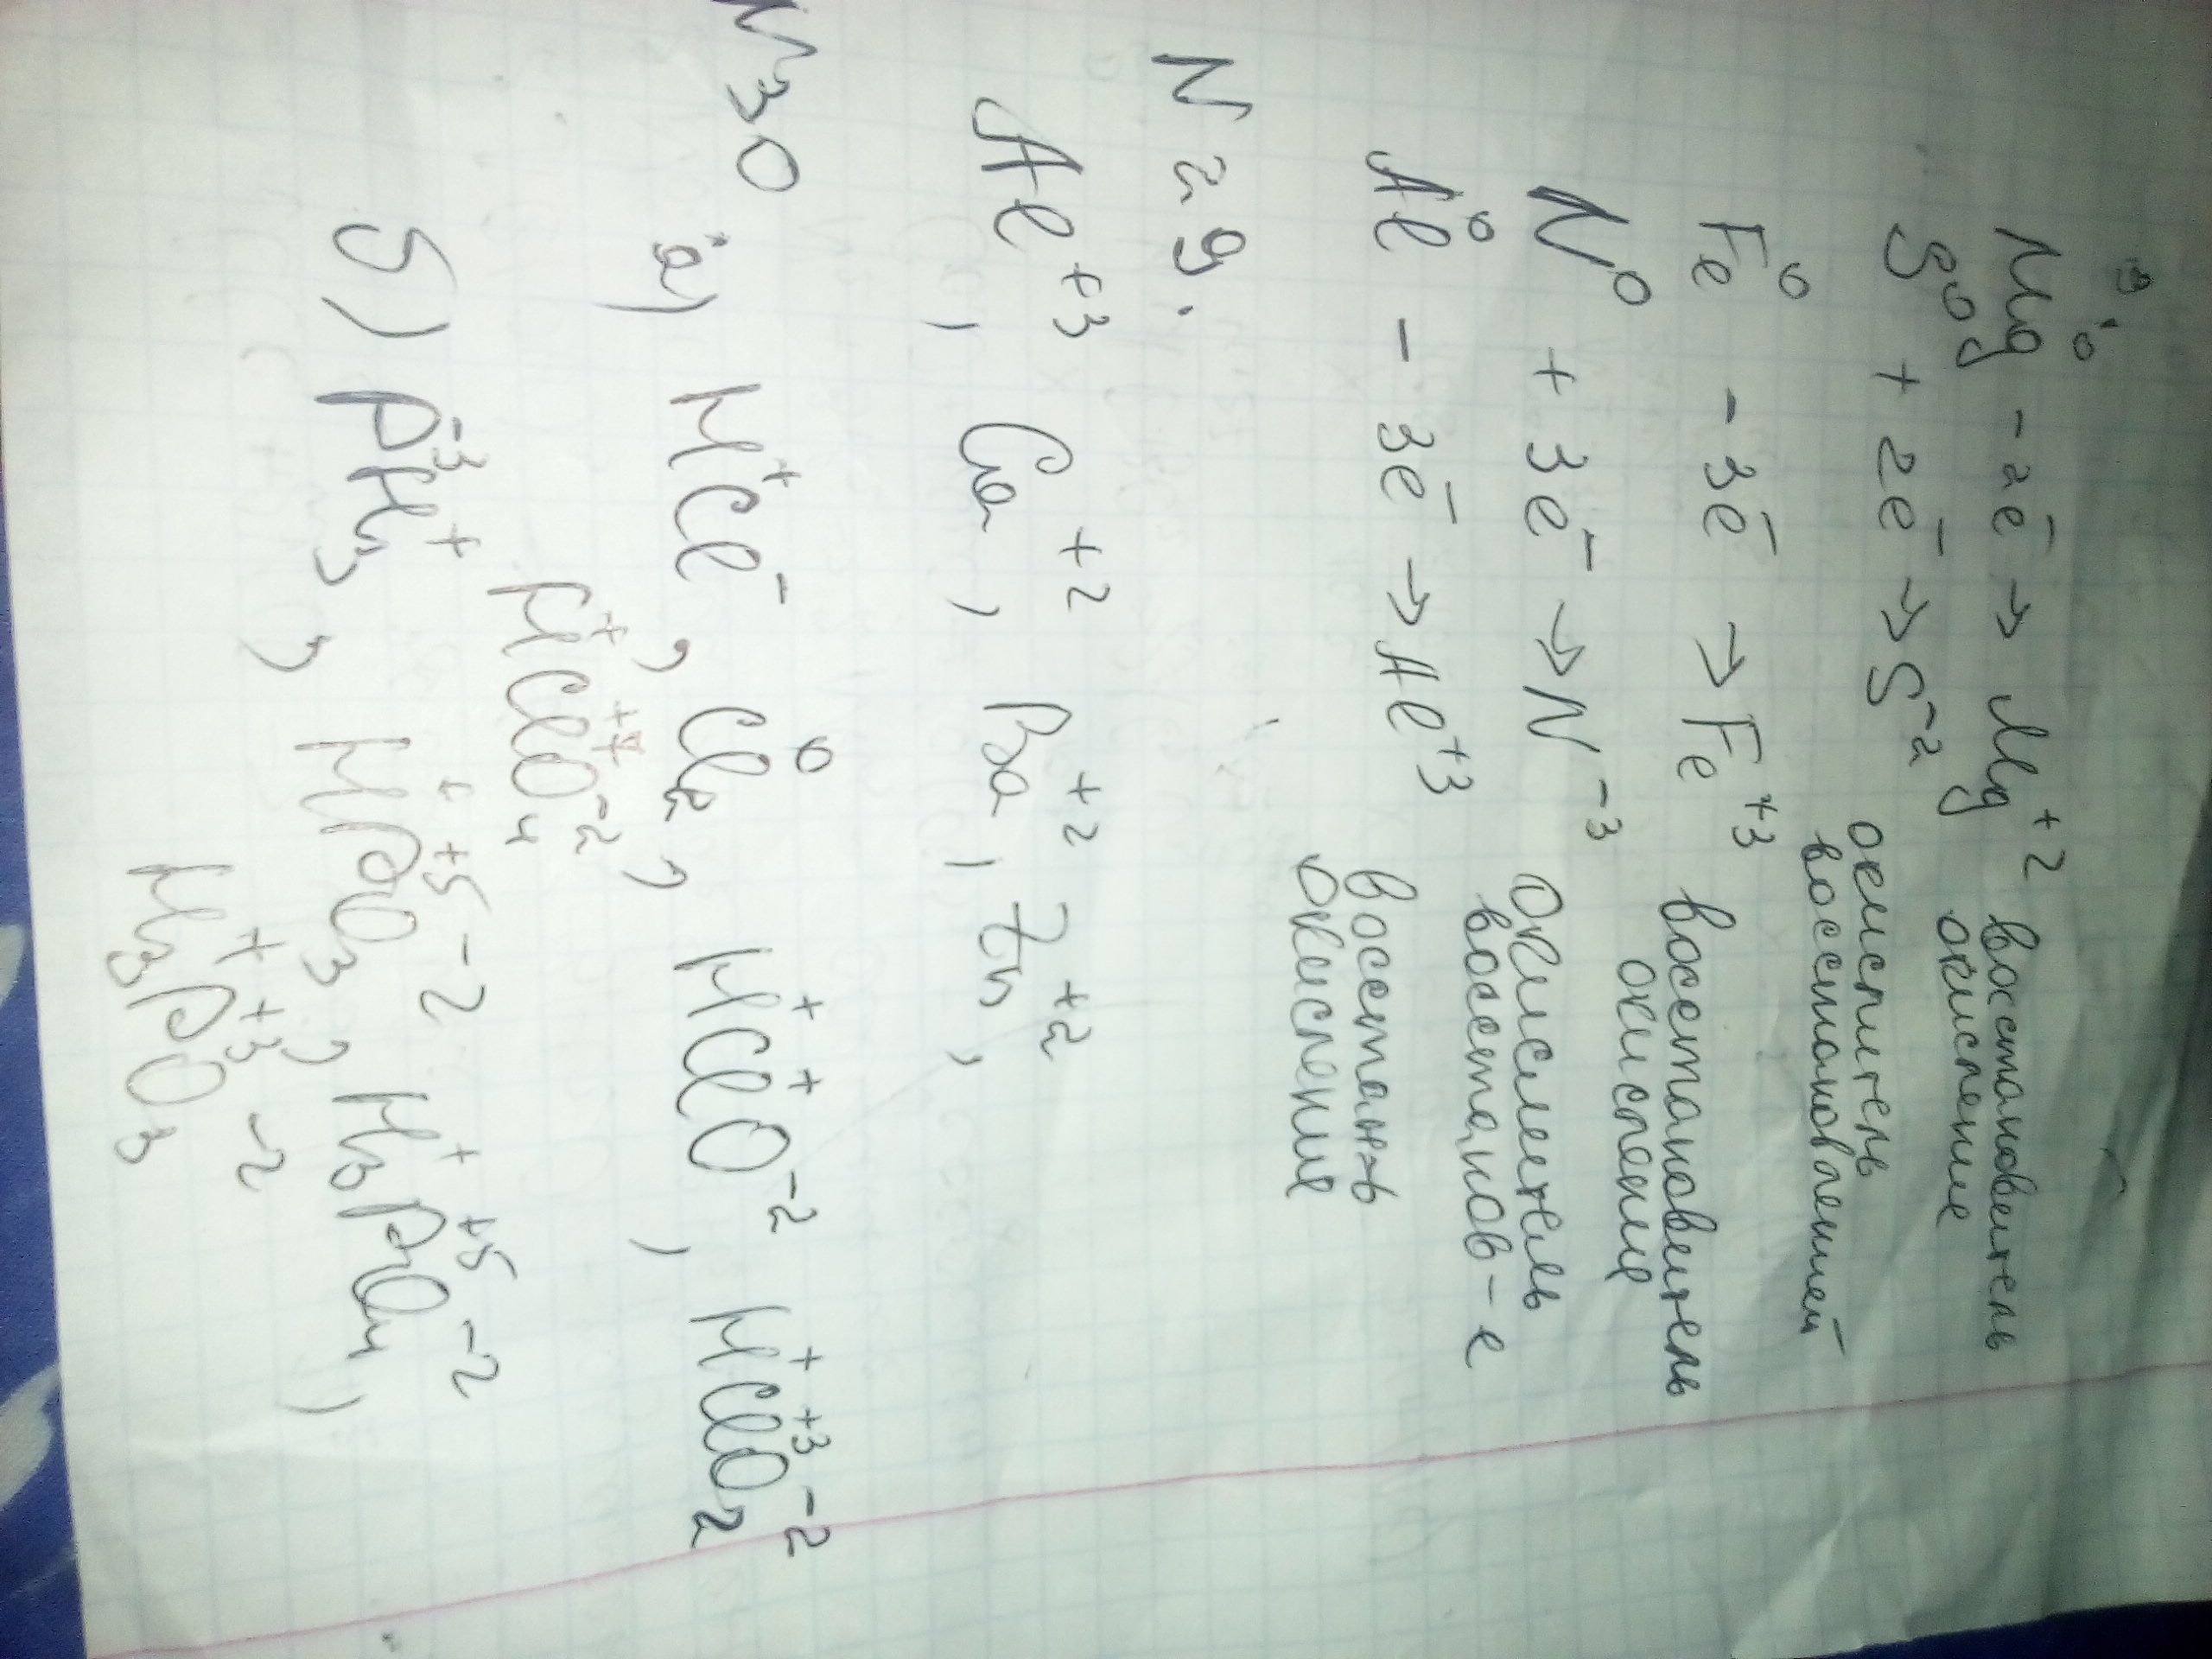 Mg⁰ - 2e⁻ → Mg⁺² восстановитель
окисление
S⁰ + 2e⁻ → S⁻² окислитель
Fe⁰ - 3e⁻ → Fe⁺³ восстановитель
окисление
N⁰ + 3e⁻ → N⁻³ окислитель
восстанов-е
Al⁰ - 3e⁻ → Al⁺³ восстан-ль
окисление
N 29.
Al⁺³, Ca⁺², Ba⁺², Zn⁺²,
N30 а) H⁺Cl⁻, Cl₂⁰, H⁺Cl⁺O⁻², H⁺Cl⁺³O₂⁻²
H⁺Cl⁺⁷O₄⁻²,
б) P⁻³H₃⁺, H⁺P⁺⁵O₃⁻², H₃⁺P⁺⁵O₄⁻²,
H₃⁺P⁺³O₃⁻²